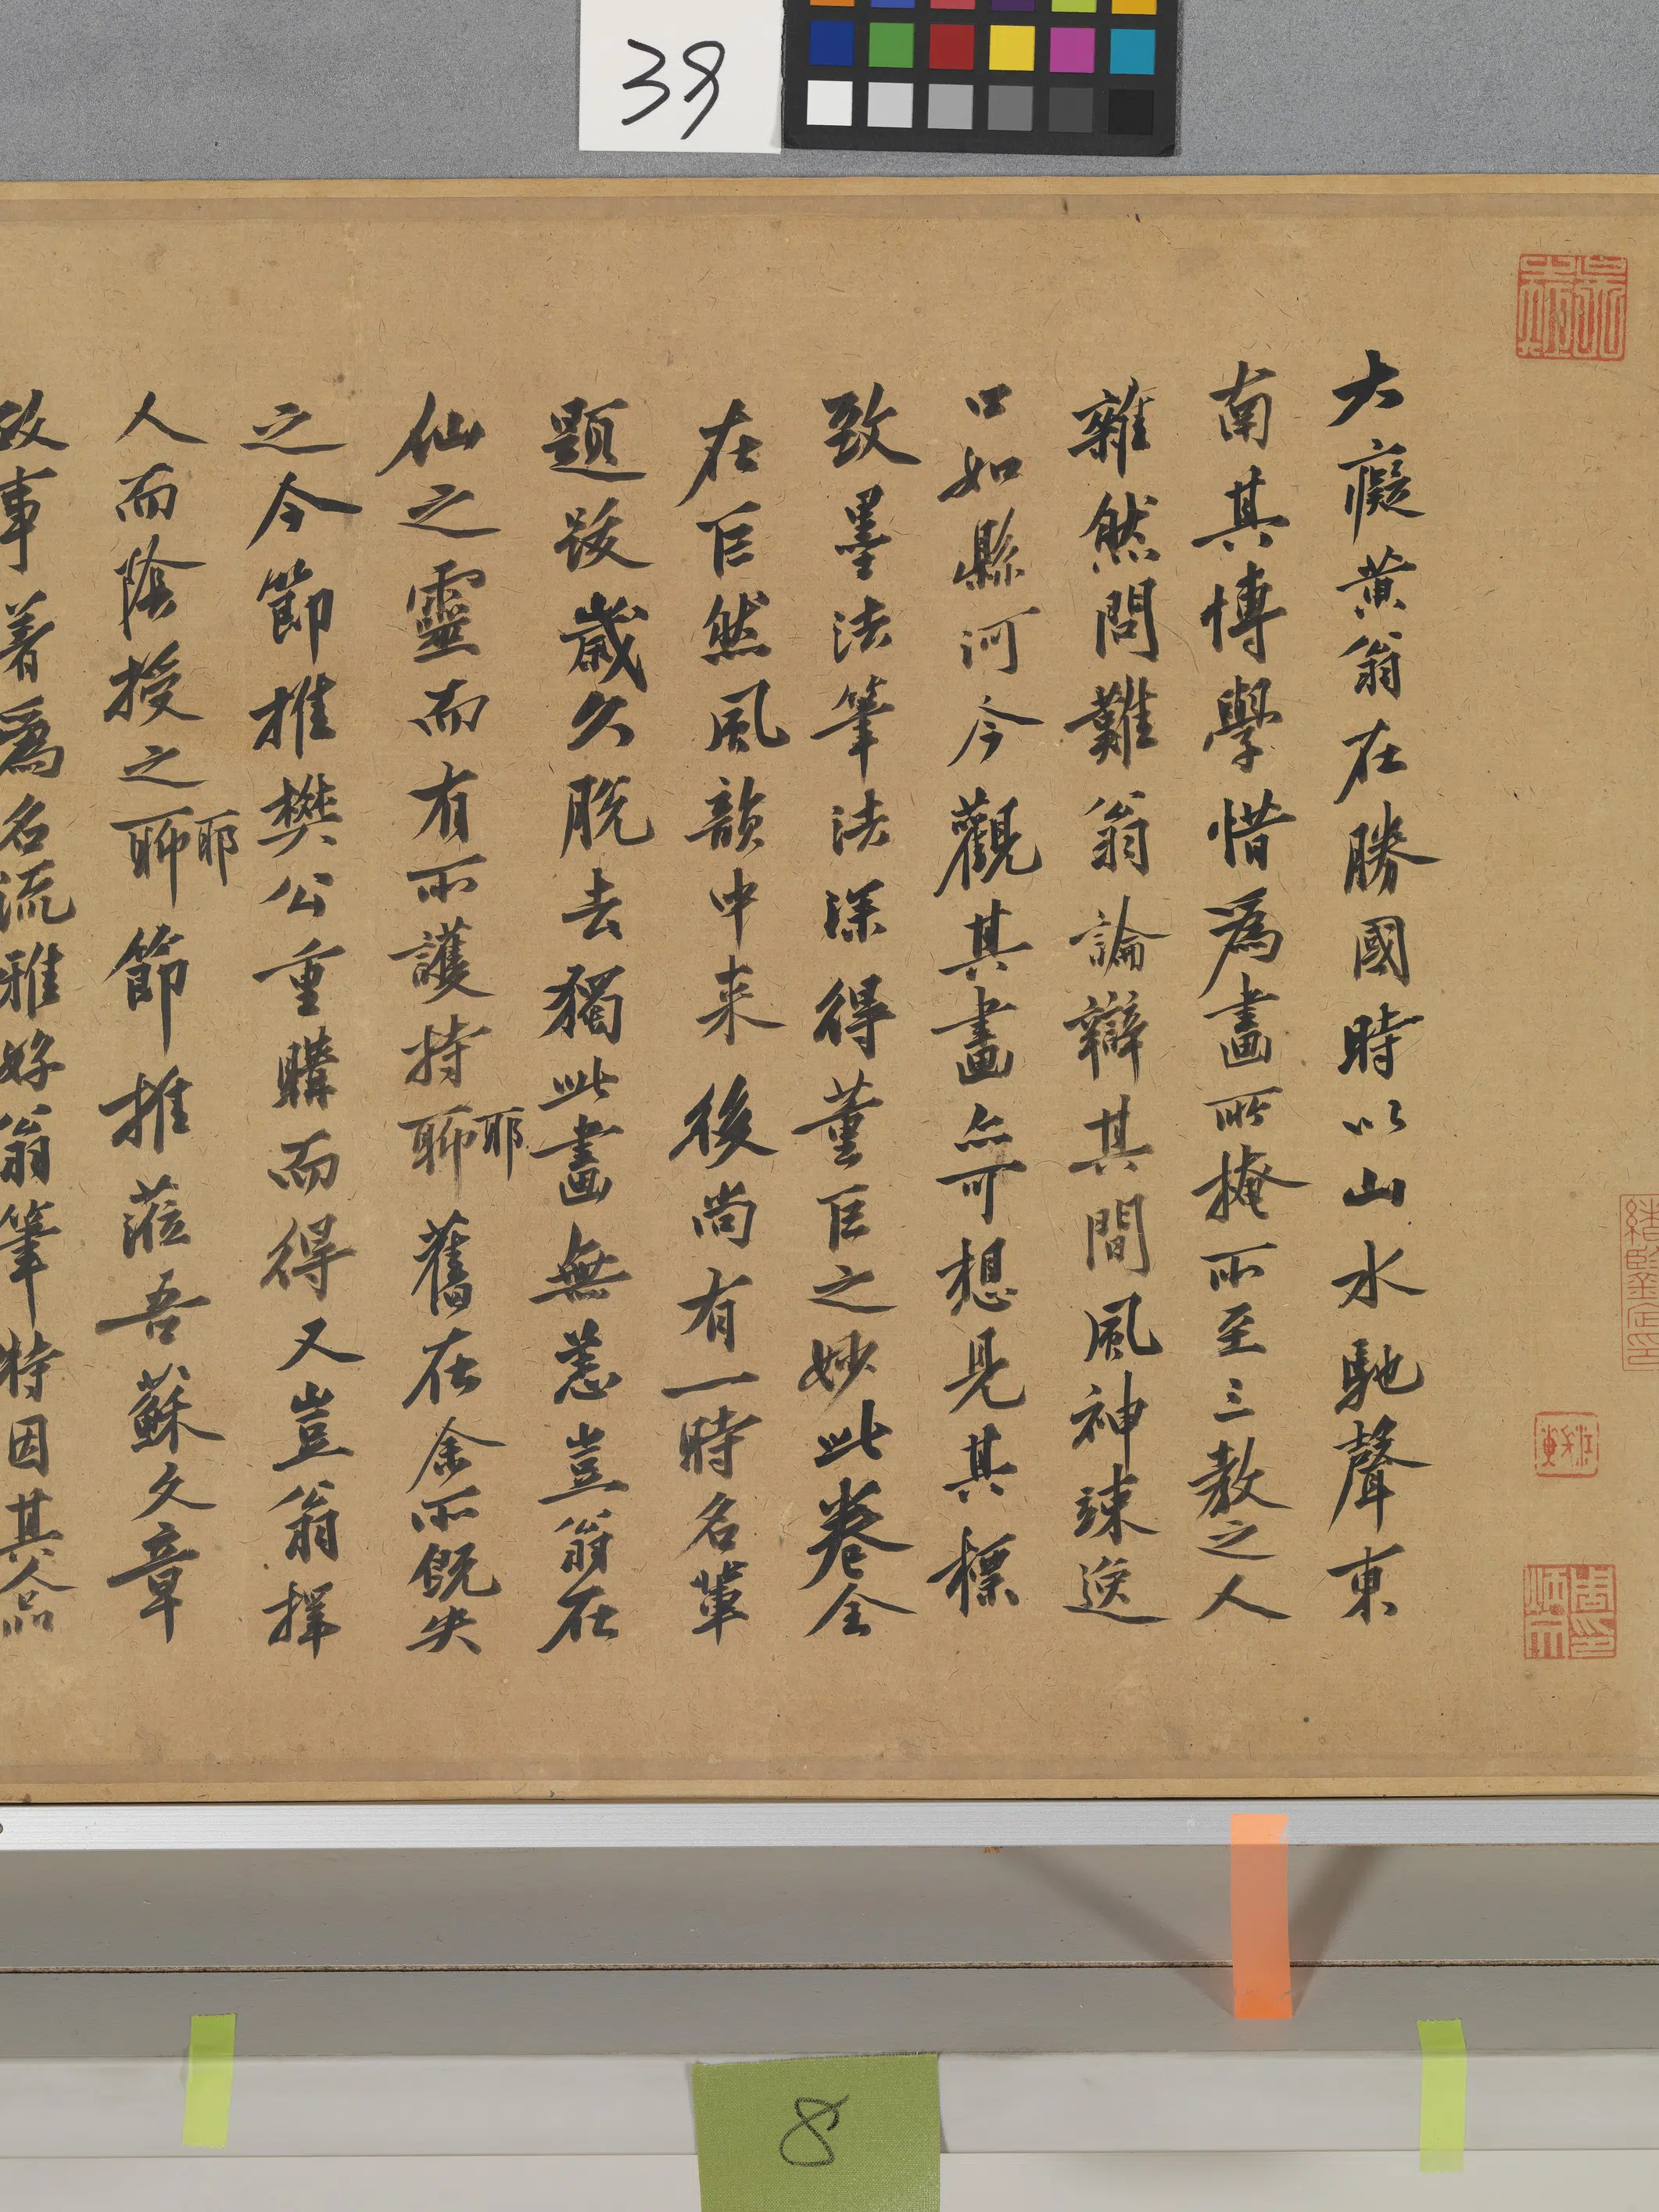 39
大癡黃翁在勝國時以山水馳聲東
南其博學惜為畫所掩所至三教之人
雜然問難翁論辯其間風神竦逸
口如懸河今觀其畫亦可想見其標
致墨法筆法深得董巨之妙此卷全
在巨然風韻中来後尚有一時名輩
題跋歲久脫去獨此畫無恙豈翁在
仙之靈而有所護持聊耶舊在余所既失
之今節推樊公重購而得又豈翁擇
人而陰授之聊耶節推蒞吾蘇文章
政事著為名流雅好翁筆特因其品
8